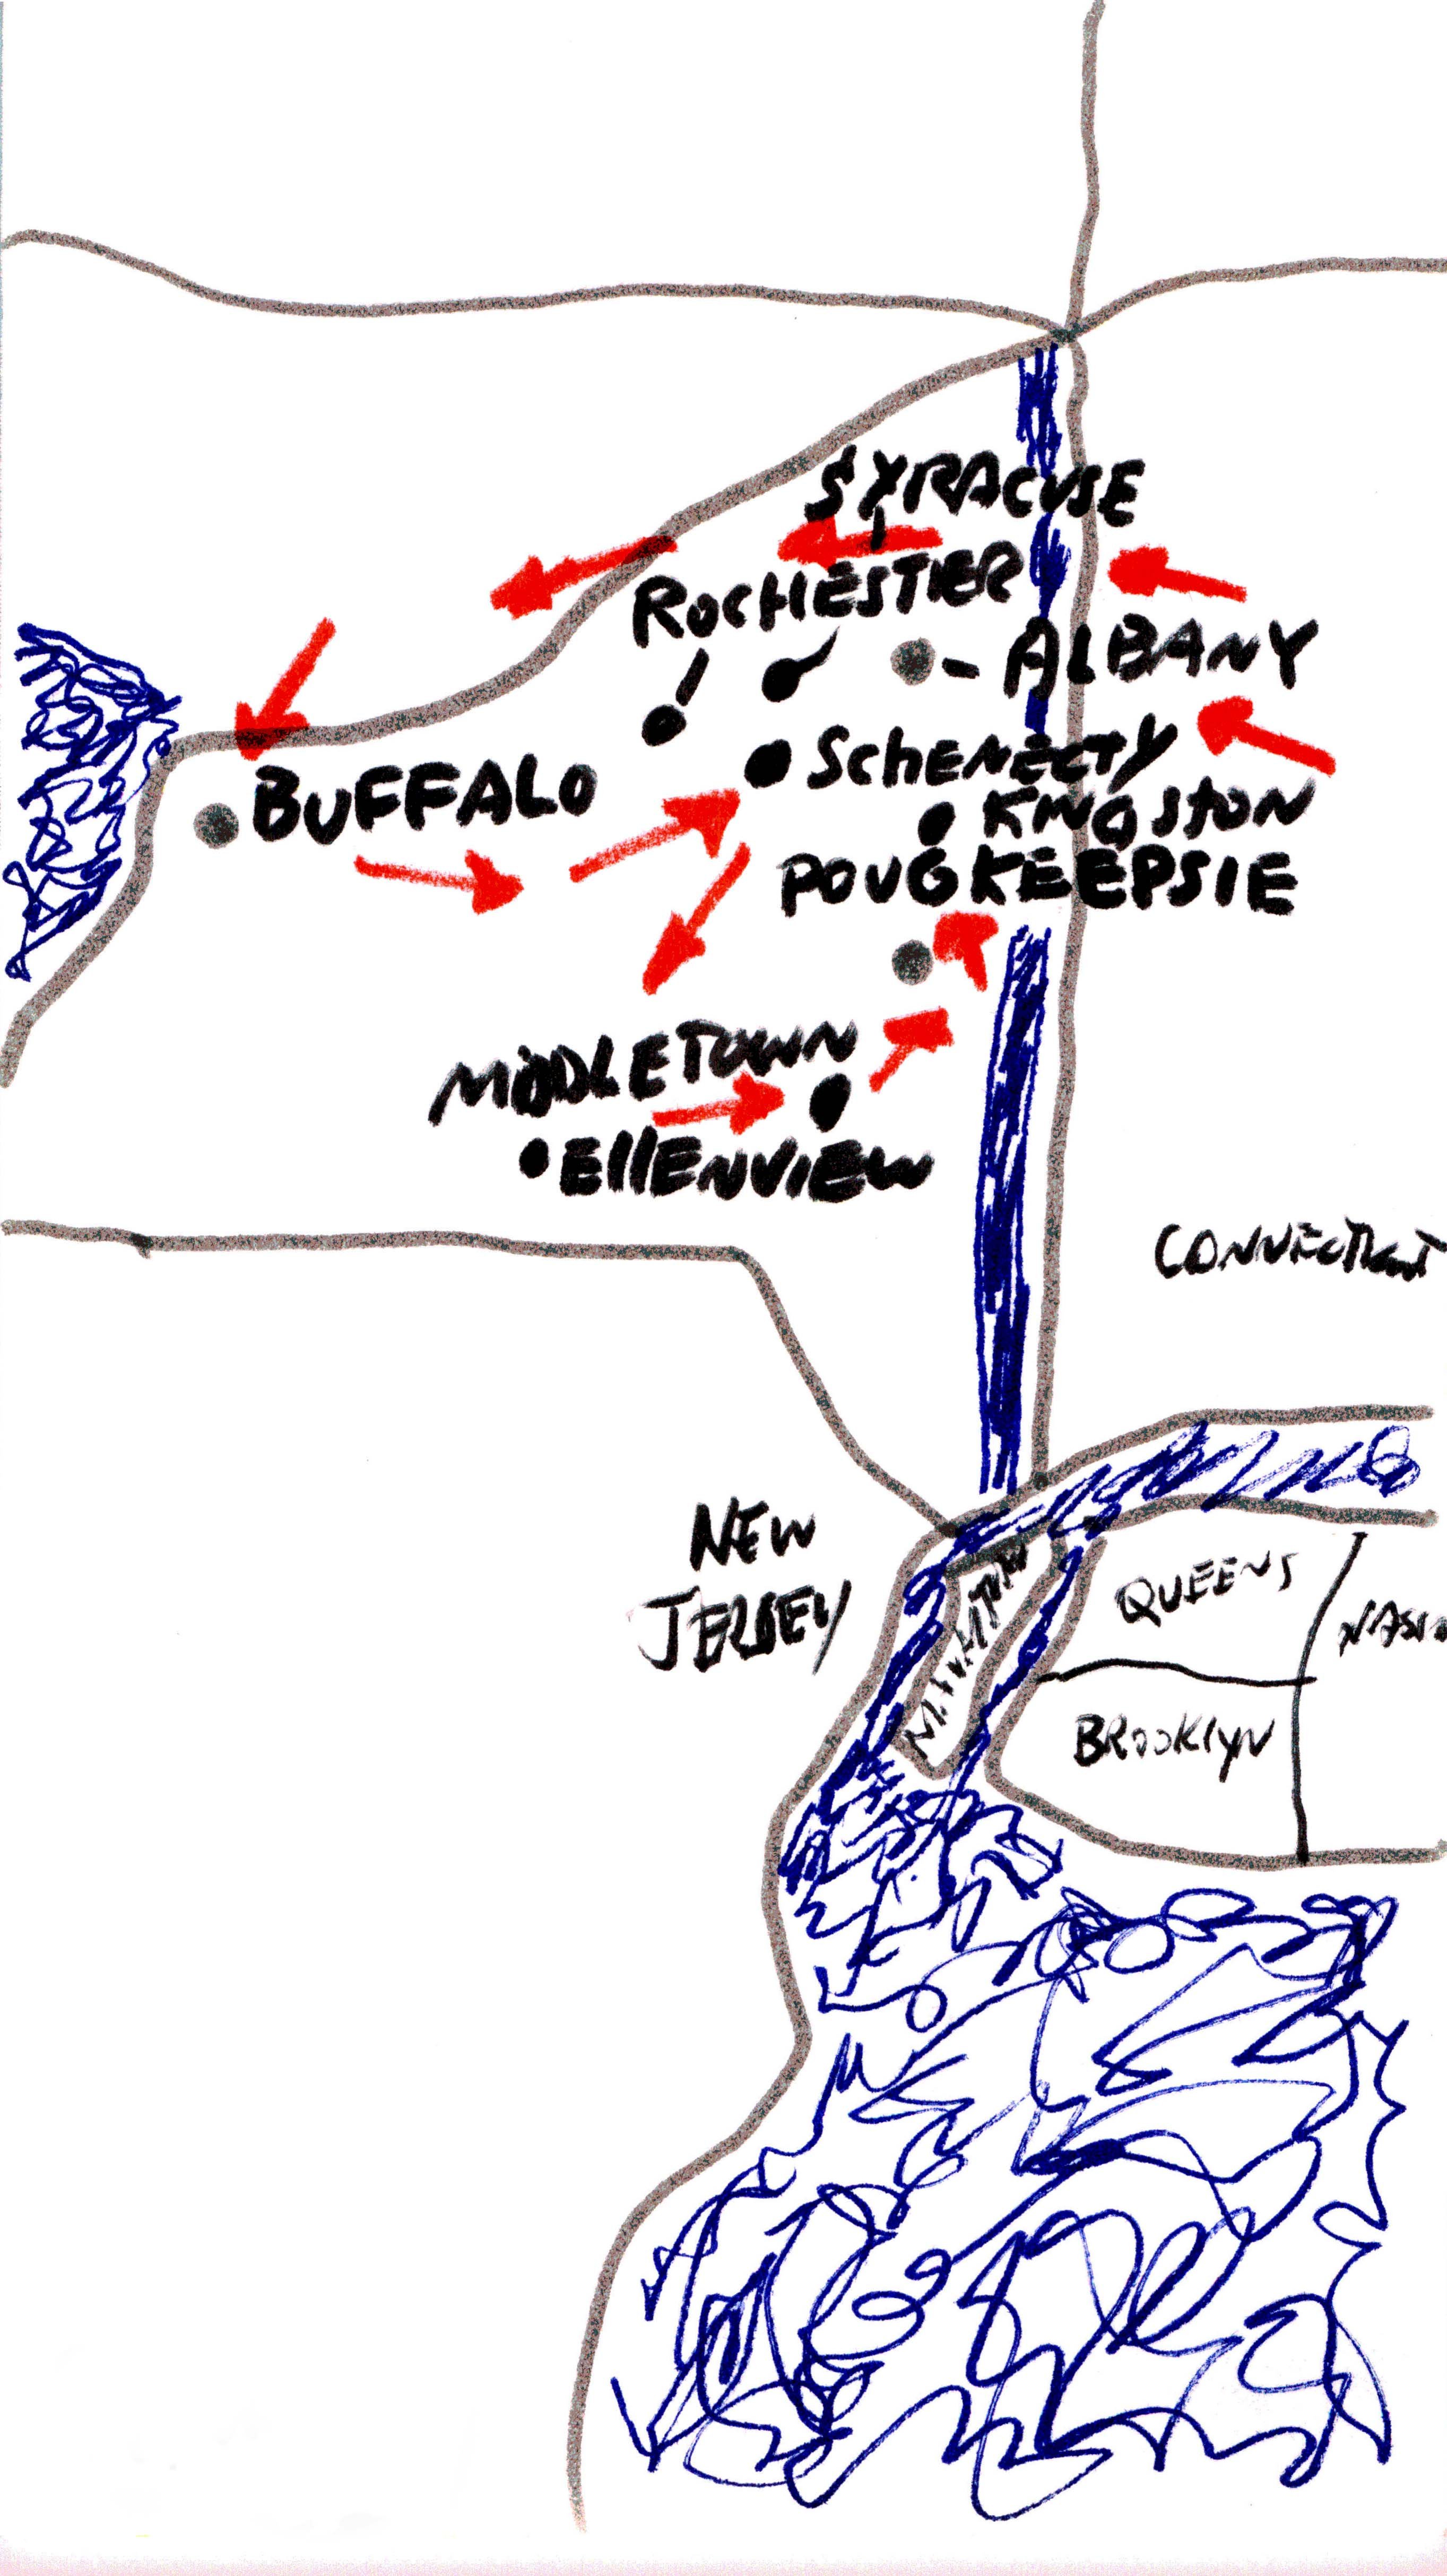 SYRACUSE
ROCHESTER
ALBANY
SCHENECTY
BUFFALO
KINGSTON
POUGKEEPSIE
MIDDLETOWN
EllENVIEW
CONNECTICUT
NEW
JERSEY
MANHATTAN
QUEENS
BROOKlyN